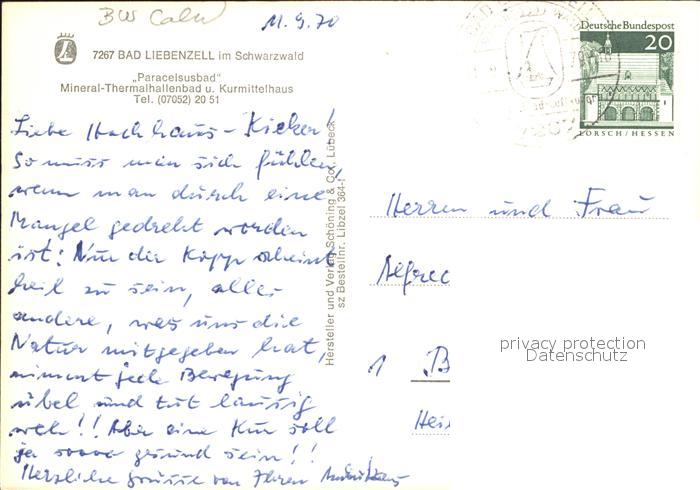 BW Calw
11.9.70
7267 BAD LIEBENZELL im Schwarzwald
„Paracelsusbad"
Mineral-Thermalhallenbad u. Kurmittelhaus
Tel. (07052) 20 51
Liebe Hochhaus-Kieker!
So muss man sich fühlen,
wenn man durch eine
Mangel gedreht worden
ist! Nur die Kippe scheint
heil zu sein, alles
andere, was uns die
Natur mitgegeben hat,
nimmt jede Bewegung
übel und tut lausig
weh!! Aber eine Kur soll
ja soooo gesund sein!!
Herzliche Grüsse von Ihren
Hersteller und Verlag Schöning & Co., Lübeck
sz Bestellnr. Libzel 364-1
Deutsche Bundespost
20
LORSCH/HESSEN
Herren und Frau
Alfrec
1 B
Hei
privacy protection
Datenschutz